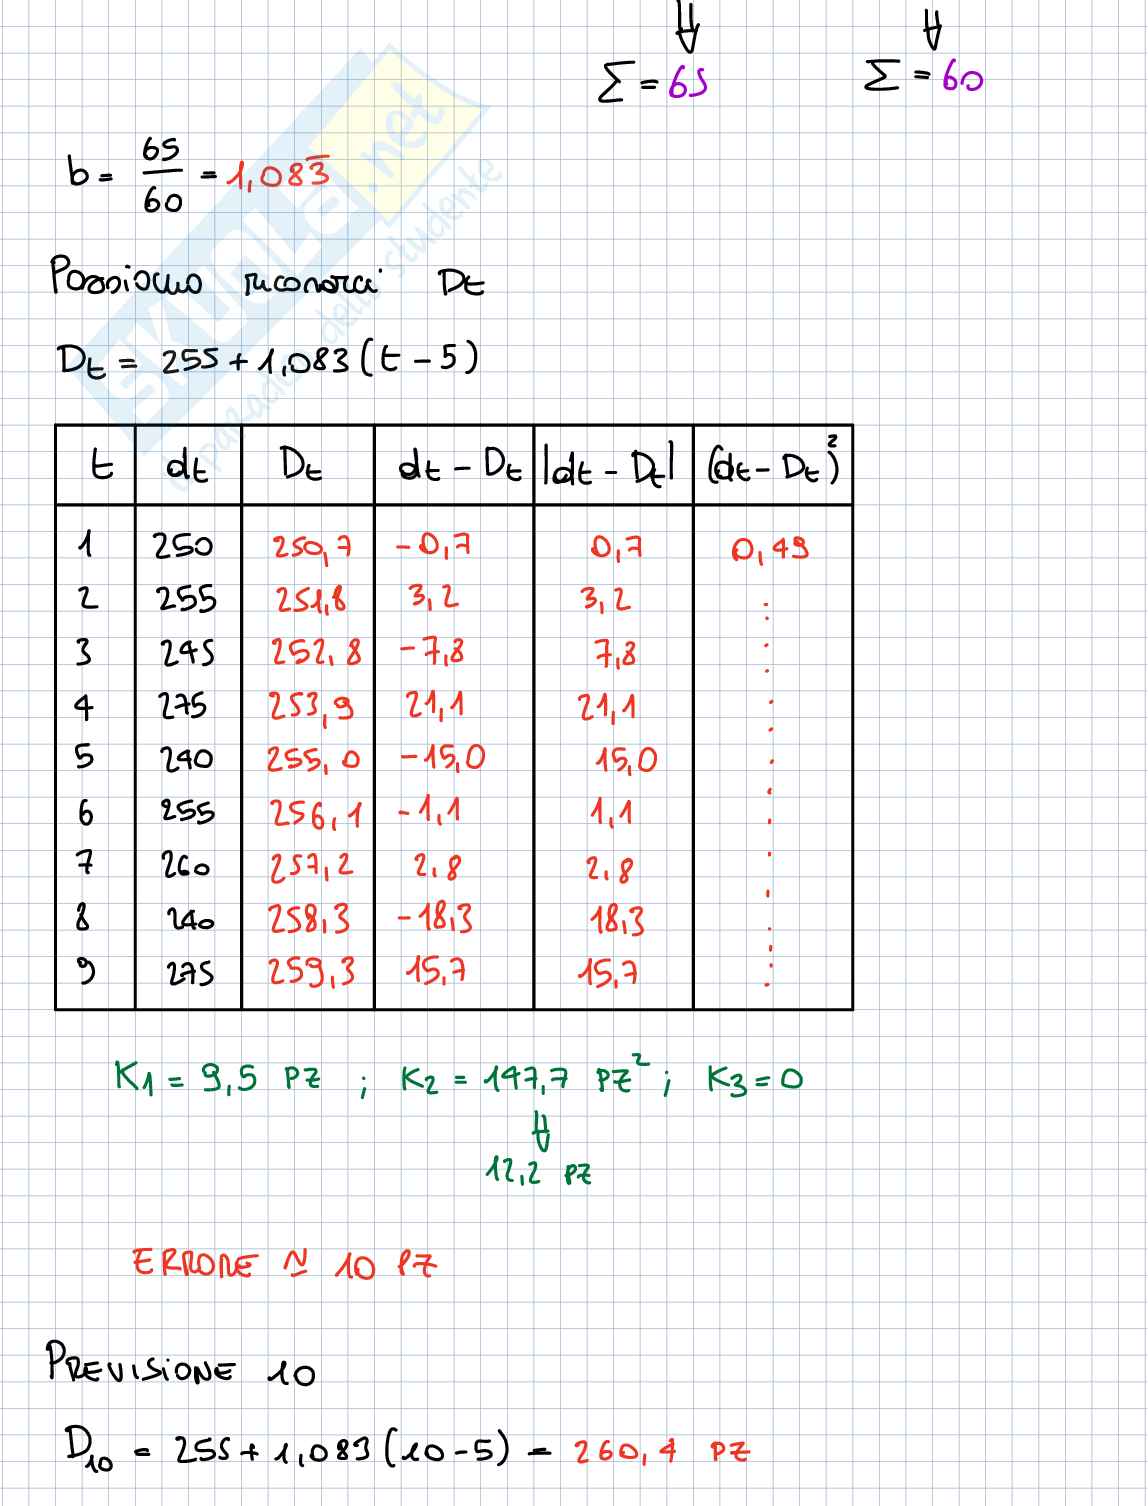 Σ = 65 Σ = 60
b = 65/60 = 1,083̅
Possiamo ricavarci Dt
Dt = 255 + 1,083 (t - 5)
t dt Dt dt - Dt |dt - Dt| (dt - Dt)²
1 250 250,7 -0,7 0,7 0,49
2 255 251,8 3,2 3,2
3 245 252,8 -7,8 7,8
4 275 253,9 21,1 21,1
5 240 255,0 -15,0 15,0
6 255 256,1 -1,1 1,1
7 260 257,2 2,8 2,8
8 240 258,3 -18,3 18,3
9 275 259,3 15,7 15,7
K1 = 9,5 PZ ; K2 = 147,7 PZ² ; K3 = 0
12,2 PZ
ERRORE ≃ 10 PZ
PREVISIONE 10
D10 = 255 + 1,083 (10 - 5) = 260,4 PZ
SKUOLA.net